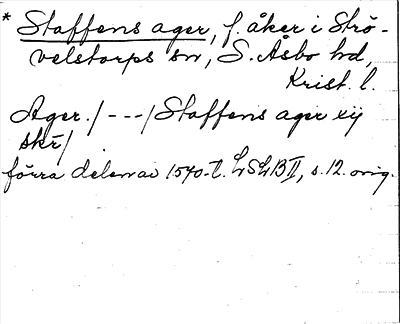 * Staffens ager, f. åker i Strö-
velstorps sn, S. Åsbo hd,
Krist. l.
Ager. / - - - / Staffens ager xij
skr̄ /
förra delen av 1540-t. LSLB II, s. 12. orig.